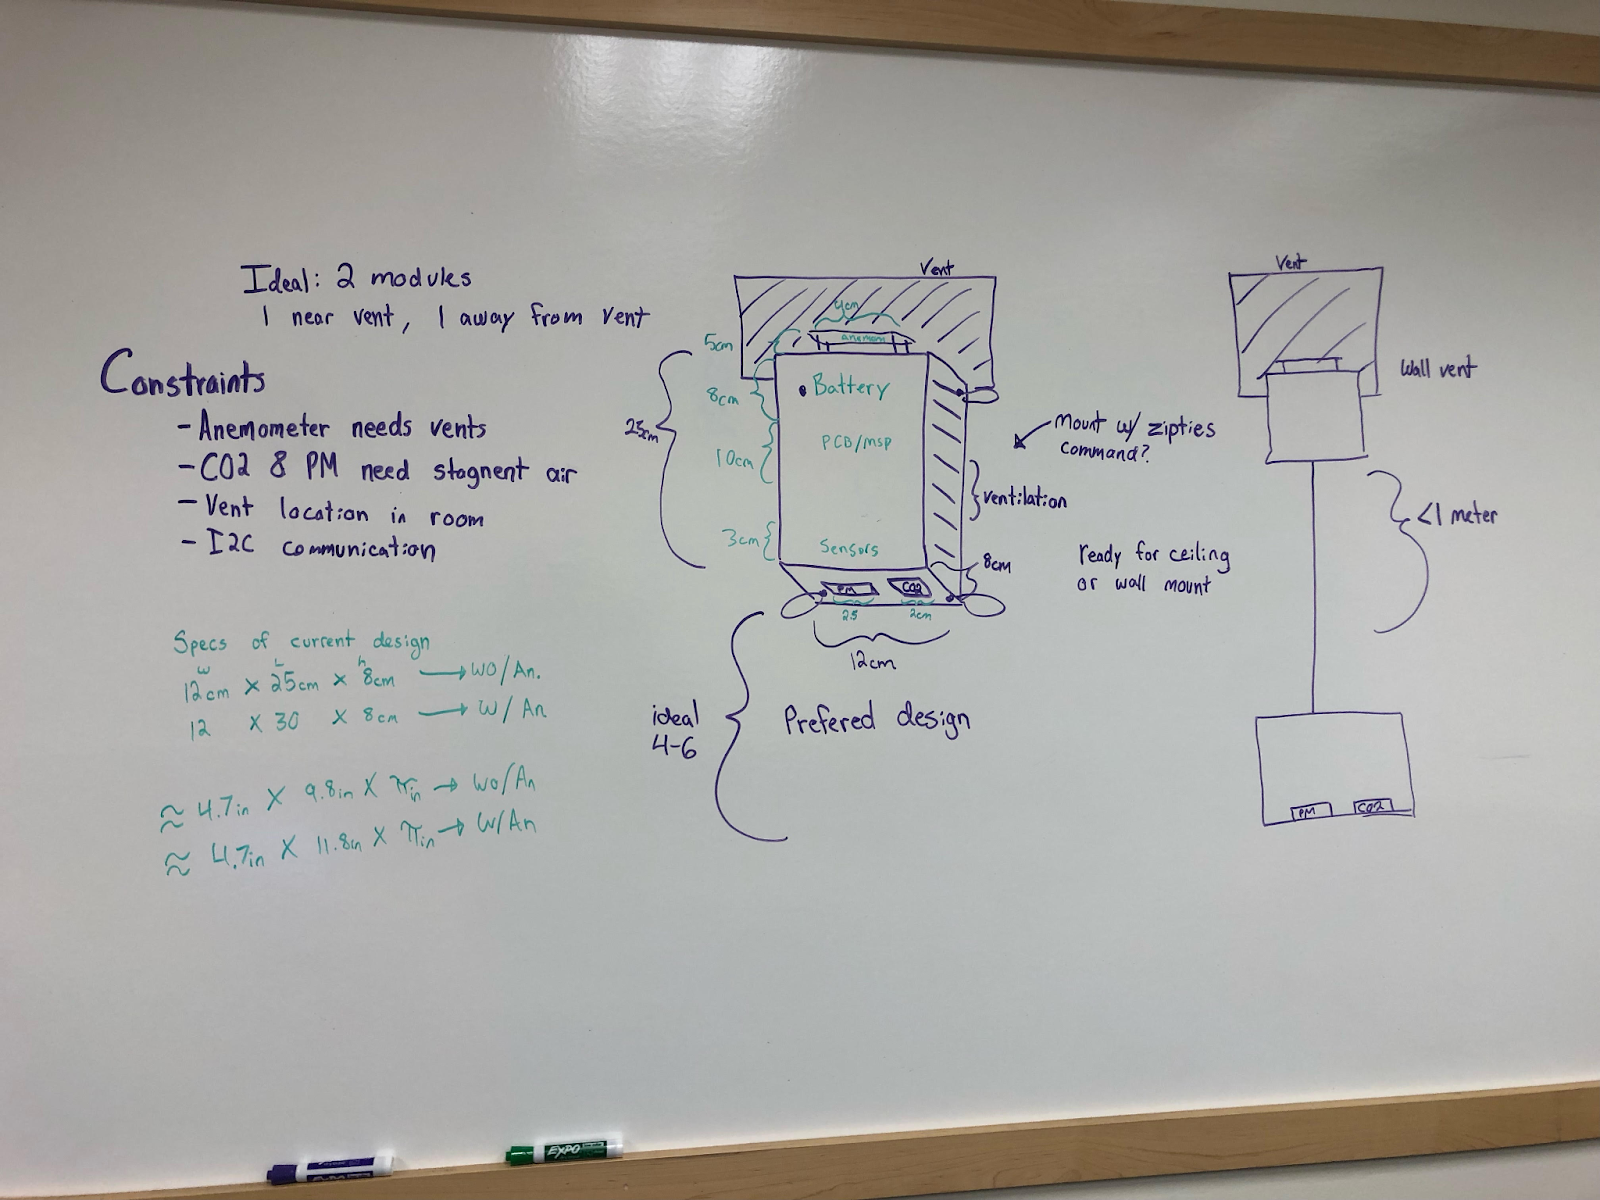 Ideal: 2 modules
1 near vent, 1 away from vent
Constraints
- Anemometer needs vents
- CO2 & PM need stagnent air
- Vent location in room
- I2C communication
Specs of current design
W L h
12cm x 25cm x 8cm → WO/An.
12 x 30 x 8cm → W/ An
≈ 4.7in x 9.8in x πin → WO/An
≈ 4.7in x 11.8in x πin → W/An
Vent
4cm
anemom
5cm
25cm
8cm
Battery
10cm
PCB/MSP
3cm
Sensors
PM
CO2
2.5
2cm
8cm
12cm
Mount w/ zipties
command?
ventilation
ready for ceiling
or wall mount
ideal
4-6
Prefered design
Vent
Wall vent
<1 meter
PM
CO2
EXPO